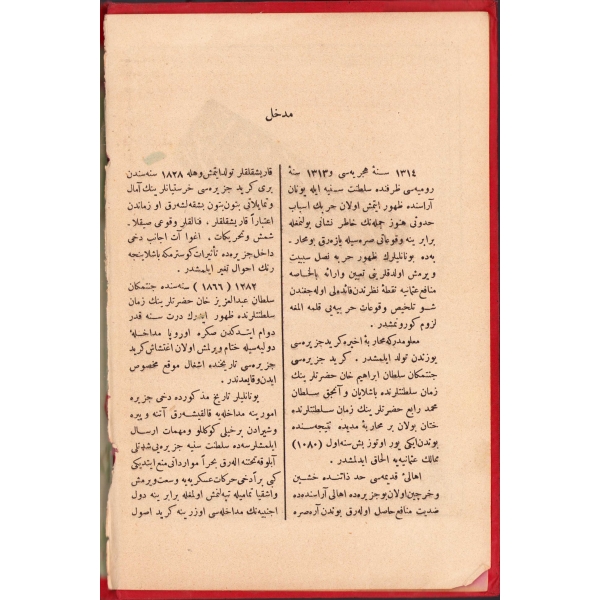 مدخل
١٣١٤ سنۀ هجریه‌سی و ١٣١٣ سنۀ
رومیه‌سی ظرفنده سلطنت سنیه ایله یونان
آراسنده ظهور ایتمش اولان حربك اسباب
حدوثی هنوز جمله‌نك خاطر نشانی بولنمغله
برابر ینه وقوعاتی صره‌سیله یازه‌رق بو محار-
به‌ده یونانلیلرك ظهور حربه نصل سببیت
ویرمش اولدقلرینی تعیین وارائه بالخاصه
منافع عثمانیه نقطۀ نظرندن فائده‌لی اوله‌جغندن
شو تلخیص وقوعات حربیه‌یی قلمه المغه
لزوم کورونمشدر.
معلومدرکه محاربۀ اخیره کرید جزیره‌سی
یوزندن تولد ایلمشدر. کرید جزیره‌سی
جنتمکان سلطان ابراهیم خان حضرتلرینك
زمان سلطنتلرنده باشلایان و آنجق سلطان
محمد رابع حضرتلرینك زمان سلطنتلرنده
ختان بولان بر محاربۀ مدیده نتیجه‌سنده
بوندن ایکی یوز اوتوز بش سنه اول (١٠٨٠)
ممالك عثمانیه‌یه الحاق ایدلمشدر.
اهالئ قدیمه‌سی حد ذاتنده خشین
وخرچین اولان بو جزیره‌ده اهالی آراسنده‌ده
ضدیت منافع حاصل اوله‌رق بوندن آره‌صره
قاریشقلقلر تولد ایتمش وهله ١٨٢٨ سنه‌سندن
بری کرید جزیره‌سی خرستیانلرینك آمال
وتمایلاتی بتون بتون بشقه‌لشه‌رق او زماندن
اعتباراً قاریشقلقلر، فنالقلر وقوعی صیقلا-
شمش وتحریکات، اغوا آت اجانب دخی
داخل جزیره‌ده تأثیرات کوسترمکه باشلاینجه
رنك احوال تغیر ایلمشدر.
١٢٨٢ (١٨٦٦) سنه‌سنده جنتمکان
سلطان عبدالعزیز خان حضرتلرینك زمان
سلطنتلرنده ظهور ایدرك درت سنه قدر
دوام ایتدکدن صکره اوروپا مداخلۀ
دولیه‌سیله ختام ویرلمش اولان اغتشاش کرید
جزیره‌سی تاریخنده اشغال موقع مخصوص
ایدن وقایعدندر.
یونانلیلر تاریخ مذکورده دخی جزیره
امورینه مداخله‌یه قالقیشه‌رق آتنه و پیره
وشیرادن برخیلی کوکللو ومهمات ارسال
ایلمشلرسه‌ده سلطنت سنیه جزیره‌یی شدتلی
آبلوقه تحتنه اله‌رق بحراً مواردانی منع ایتدیکی
کبی براً دخی حرکات عسکریه‌یه وسعت ویرمش
واشقیا تمامیله تپه‌لنمش اولمغله برابر ینه دول
اجنبیه‌نك مداخله‌سی اوزرینه کرید اصول